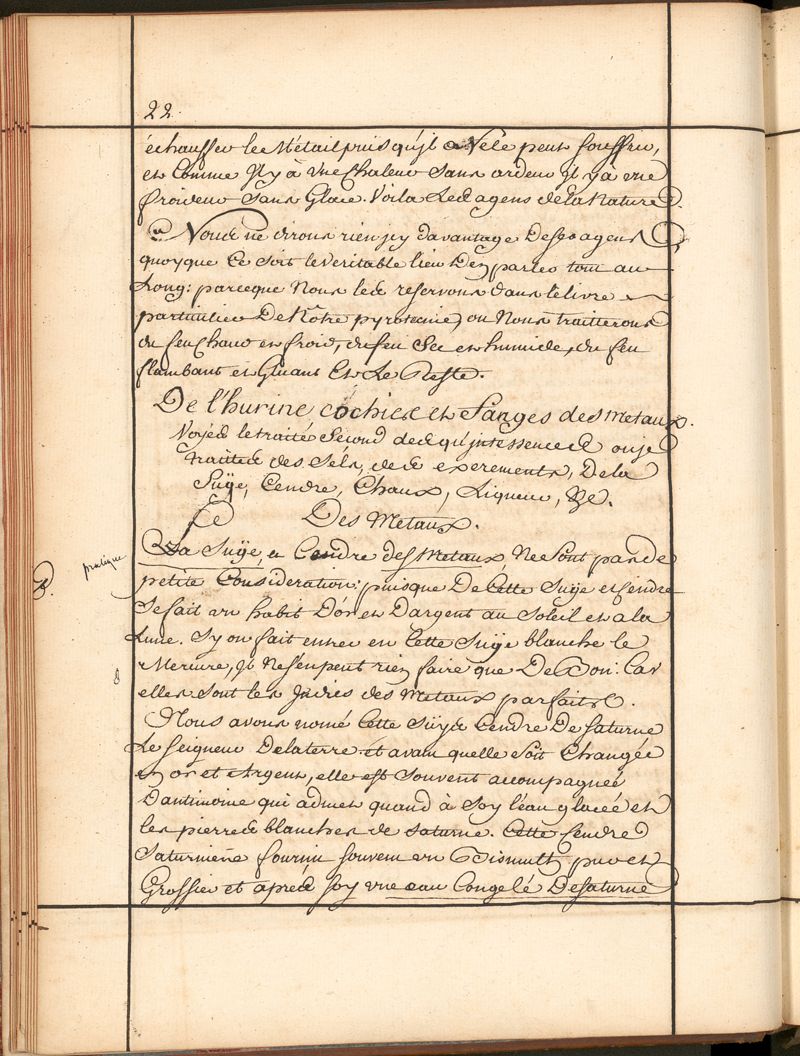 22.
échauffer le Métail puis qu'jl a Nele peut souffrir,
et Comme Jl y à vne Chaleur sans ardeur Jl y à vne
froideur sans Glace. Voila Les agens de la Nature.
Nous ne dirons rien jcy davantage Des agens
quoyque Ce soit le veritable lieu Den parler tout au
Long: parceque Nous les reservons dans le livre
particulier De Nôtre pyrotecnie, ou Nous traitterons
du feu Chaud et froid, du feu Sec et humide, du feu
flambant et Gluant Et Le Reste.
De l'hurine cochier et fanges des Metaux.
Voyés le traité Second des qu'jntessences ou je
traitte des Sels, des excrements, De la
Suÿe, Cendre, Chaux, Liqueur, &c.
Des Metaux.
pratique
La Suÿe, et Cendre des Metaux, Ne Sont pas de
petite Consideration: puisque De Cette Suÿe et Cendre
Se fait un habit D'or et D'argent au Soleil et a la
Lune. Sy on fait entrer en Cette Suÿe blanche le
Mercure, Jl Ne s'en peut rien faire que De Bon: Car
elles Sont les des Metaux parfaits.
Nous avons nomé Cette Suÿe Cendre De Saturne
Le Seigneur De la terre et avant quelle Soit Changée
en or et Argent, elle est Souvent accompagnée
Dantimoine qui admet quand à Soy l'eau glacée et
les pierres blanches de Saturne. Cette Cendre
Saturniene fournit souvent un Bismutt, pur et
Grossier et aprés soy vne eau Congelé De Saturne